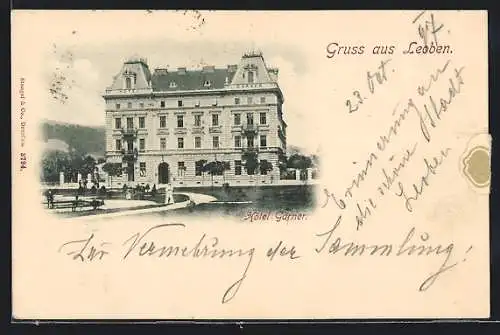 Gruss aus Leoben.
23. Okt. 97.
Erinnerung an
die schöne Stadt
Leoben
Stengel & Co., Dresden 8794.
GARNER
Hotel Gärner.
Zur Vermehrung der Sammlung!